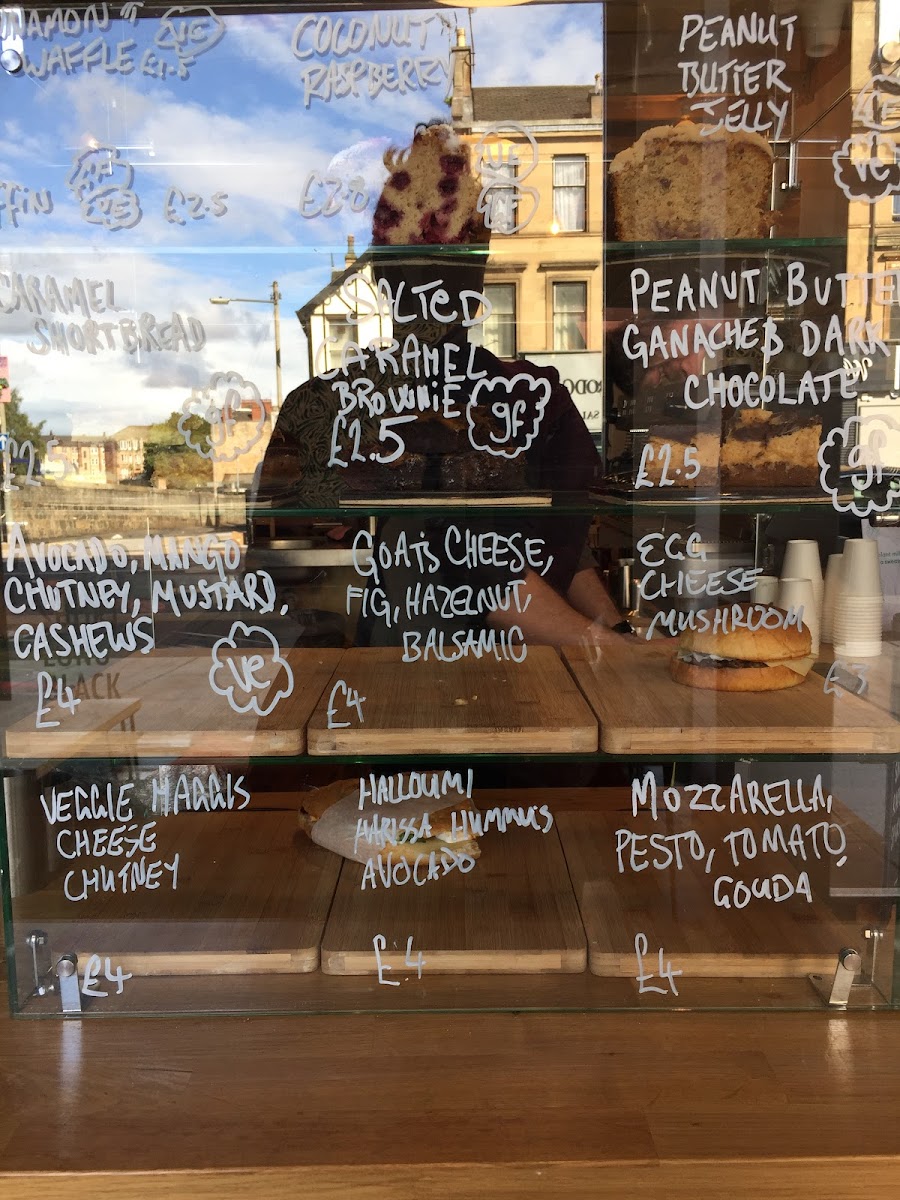 WAFFLE £1.5
ve
COCONUT
RASPBERRY
PEANUT
BUTTER
JELLY
ve
£2.5
CARAMEL
SHORTBREAD
gf
SALTED
CARAMEL
BROWNIE
£2.5
gf
PEANUT BUTTE
GANACHE & DARK
CHOCOLATE
£2.5
gf
AVOCADO, MANGO
CHUTNEY, MUSTARD,
CASHEWS
£4
ve
GOATS CHEESE,
FIG, HAZELNUT,
BALSAMIC
£4
EGG
CHEESE
MUSHROOM
£3
VEGGIE HAGGIS
CHEESE
CHUTNEY
£4
HALLOUMI
HARISSA HUMMUS
AVOCADO
£4
MOZZARELLA,
PESTO, TOMATO,
GOUDA
£4